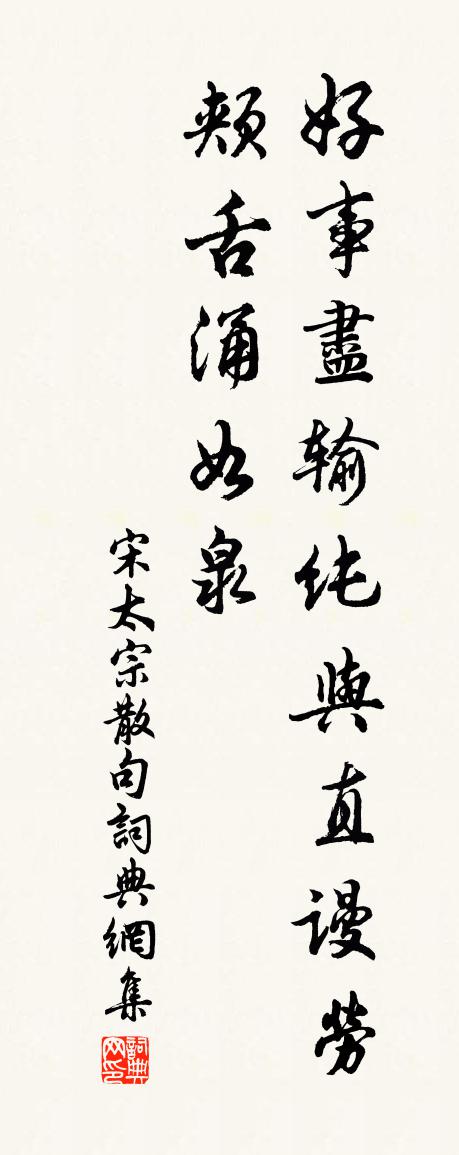 好事盡輸純與直謾勞
頰舌涌如泉
宋太宗散句詞典網集
詞典网印